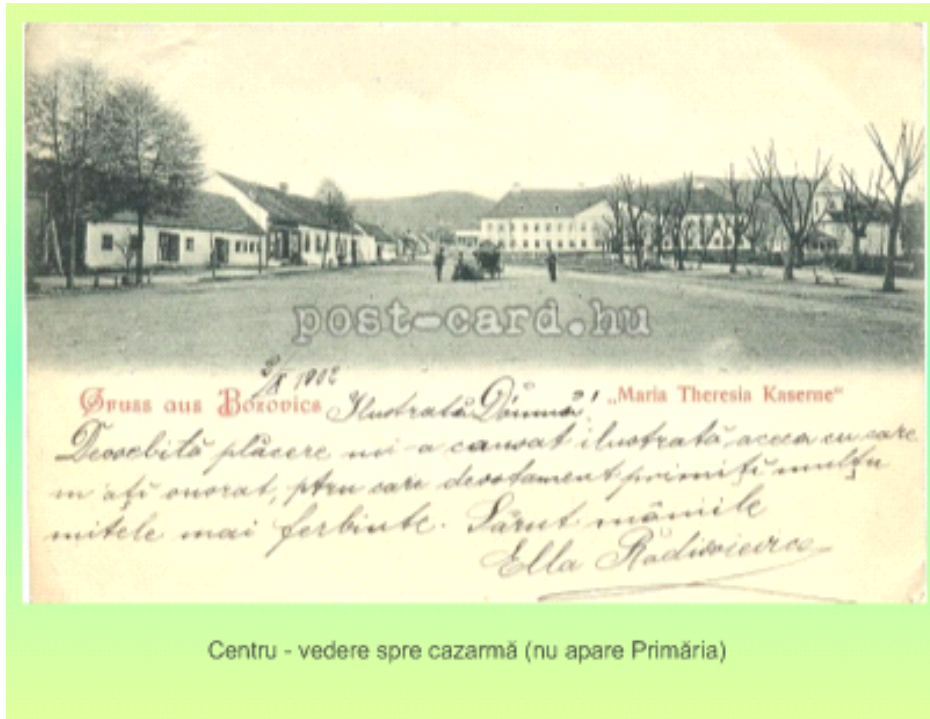 post-card.hu
2/X 1902
Gruss aus Bozovics Ilustrată Dómnă! „Maria Theresia Kaserne“
Deosebită plăcere mi-a causat ilustrată, aceea cu care
m ați onorat, ptru care devotament primiți mulțu
mitele mai ferbinte. Sărut mâniile
Ella
Centru - vedere spre cazarmă (nu apare Primăria)